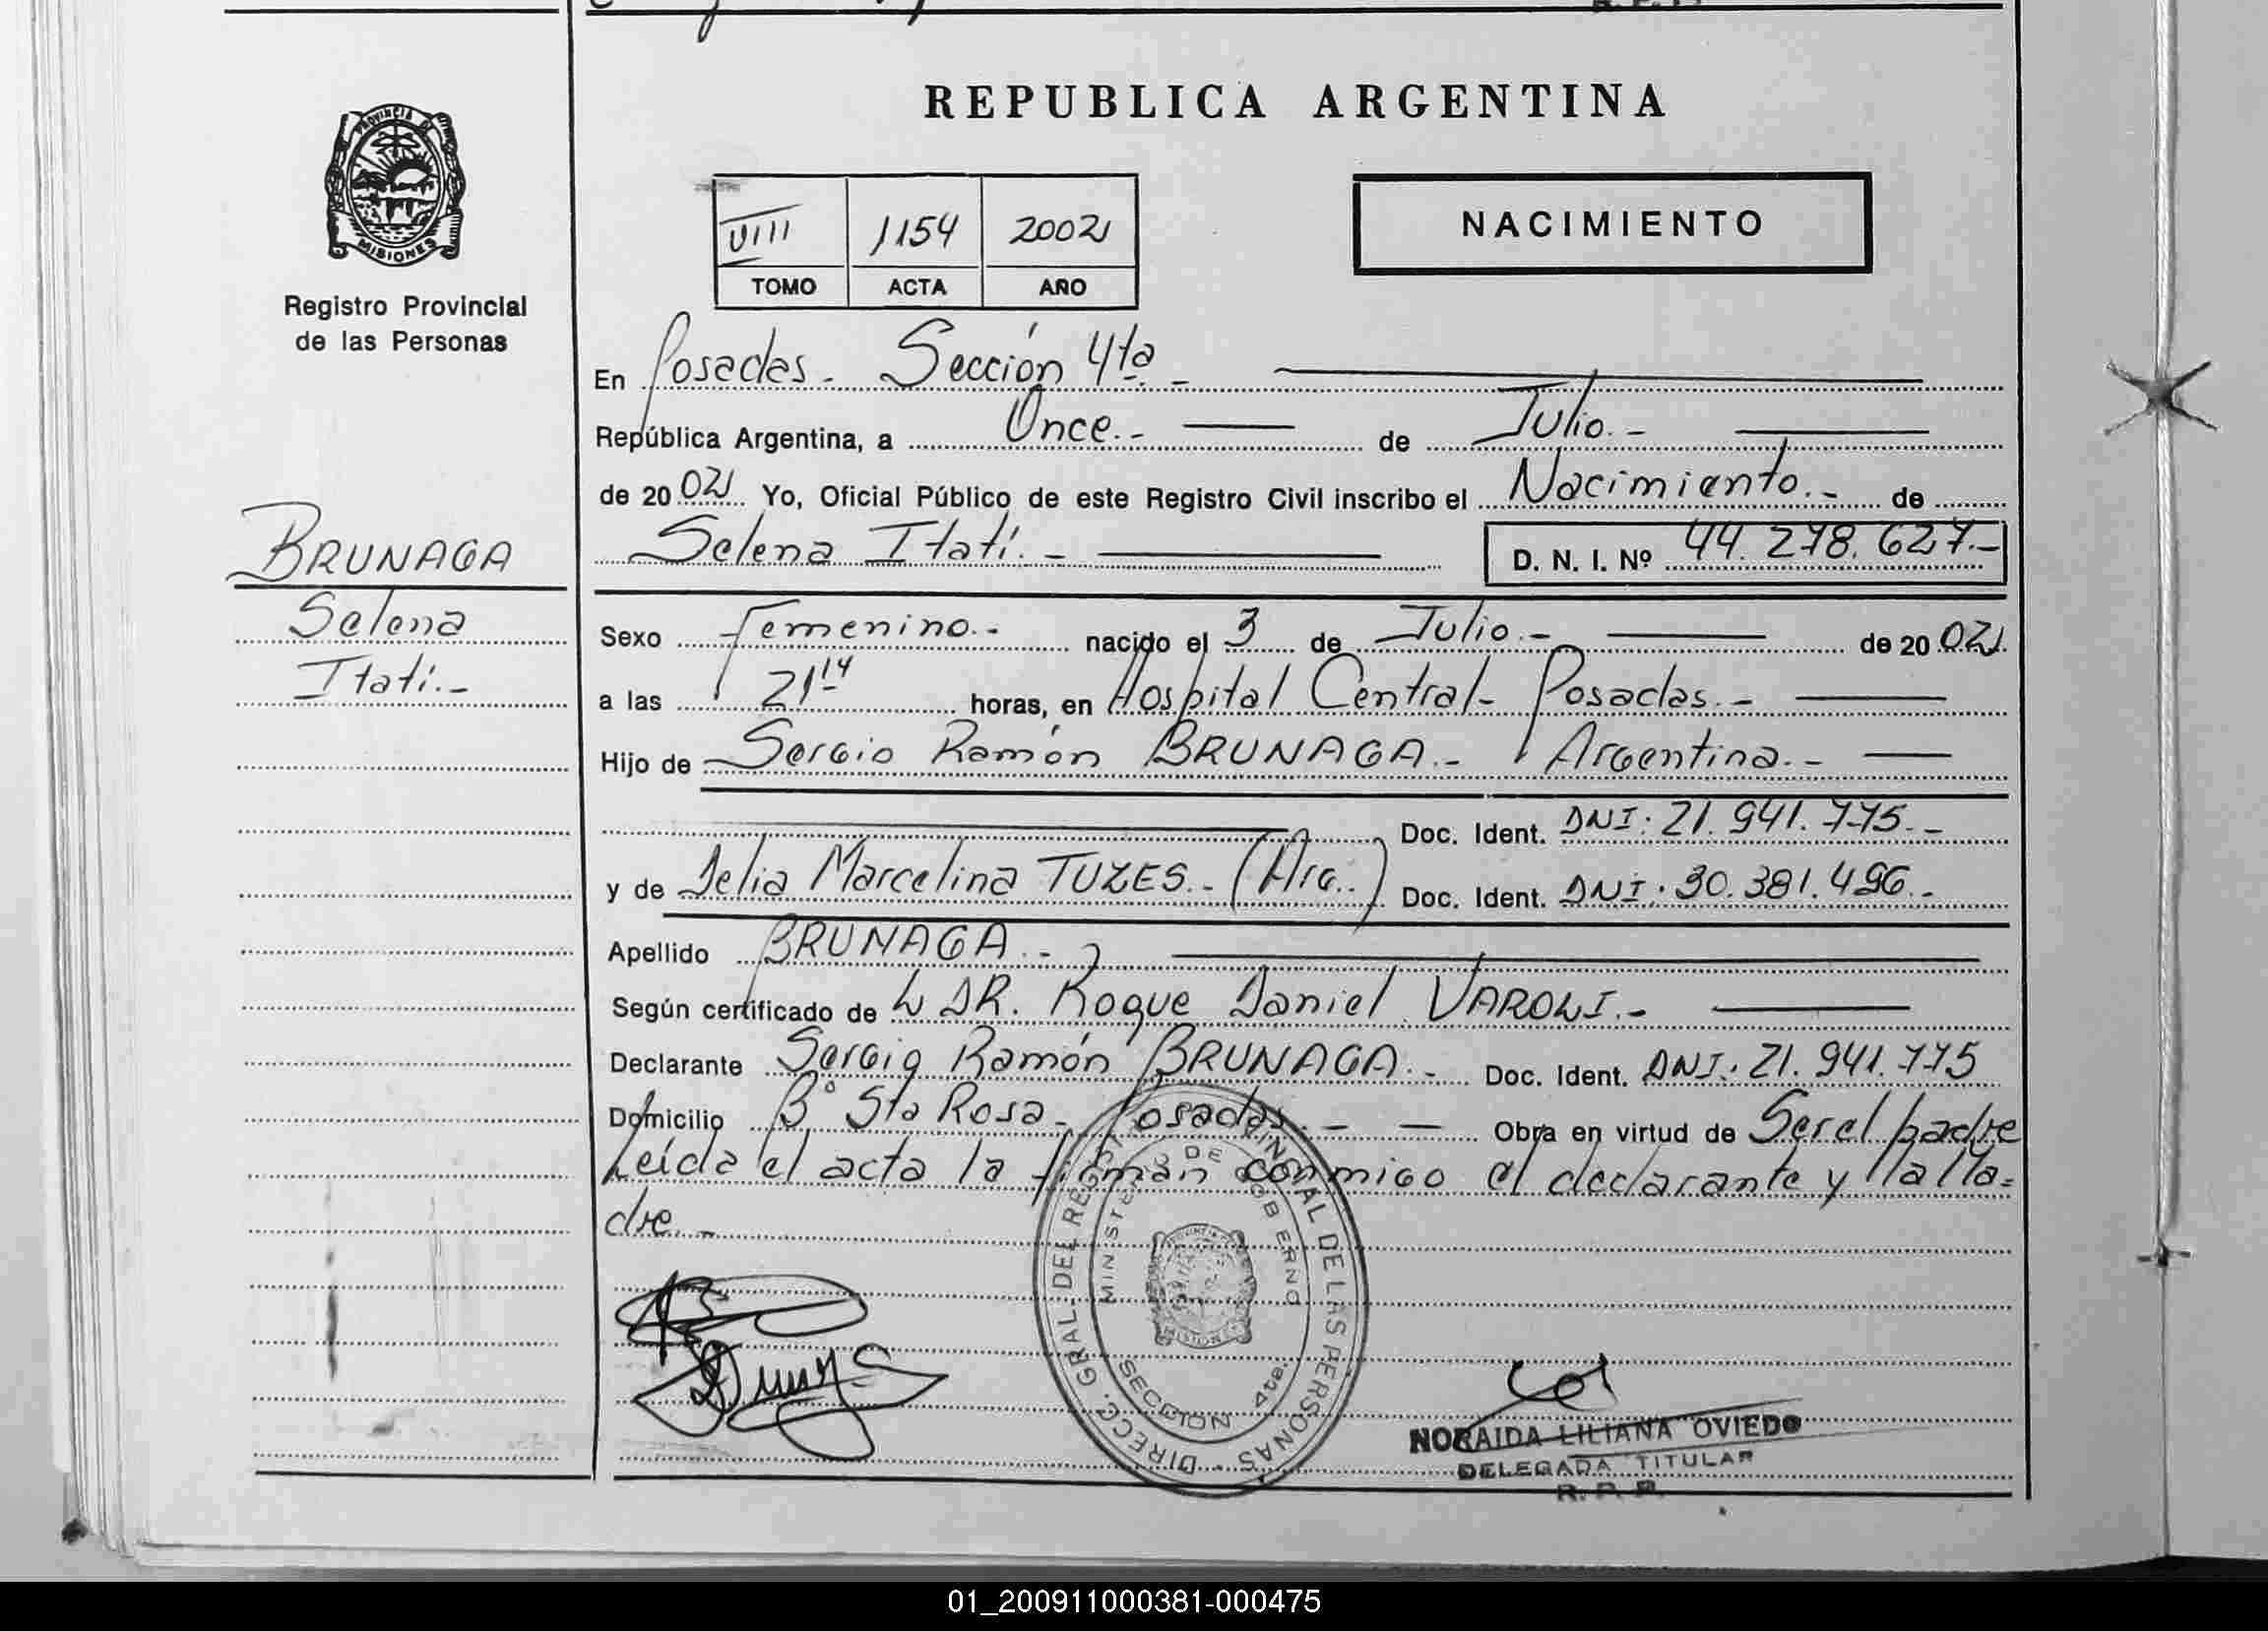 REPUBLICA ARGENTINA
PROVINCIA DE MISIONES
Registro Provincial
de las Personas
VIII 1154 2002
TOMO ACTA AÑO
NACIMIENTO
En Posadas.- Sección 4ta.-
República Argentina, a Once.- de Julio.-
de 2002 Yo, Oficial Público de este Registro Civil inscribo el Nacimiento.- de
Selena Itatí.- D. N. I. Nº 44.278.627.-
BRUNAGA
Selena
Itatí.-
Sexo Femenino.- nacido el 3 de Julio.- de 2002
a las 21 14 horas, en Hospital Central- Posadas.-
Hijo de Sergio Ramón BRUNAGA.- Argentina.-
Doc. Ident. DNI: 21.941.775.-
y de Delia Marcelina TUZES.- (Arg.) Doc. Ident. DNI: 30.381.496.-
Apellido BRUNAGA.-
Según certificado de DR. Roque Daniel VAROLI.-
Declarante Sergio Ramón BRUNAGA.- Doc. Ident. DNI: 21.941.775
Domicilio Bº Sta Rosa- Posadas.- Obra en virtud de Ser el padre
Leída el acta la firman conmigo el declarante y la Ma=
dre.-
DIRECC. GRAL. DEL REG. PROVINCIAL DE LAS PERSONAS
MINISTERIO DE GOBIERNO
SECCION 4ta.
NORAIDA LILIANA OVIEDO
DELEGADA TITULAR
R. P. P.
01_200911000381-000475